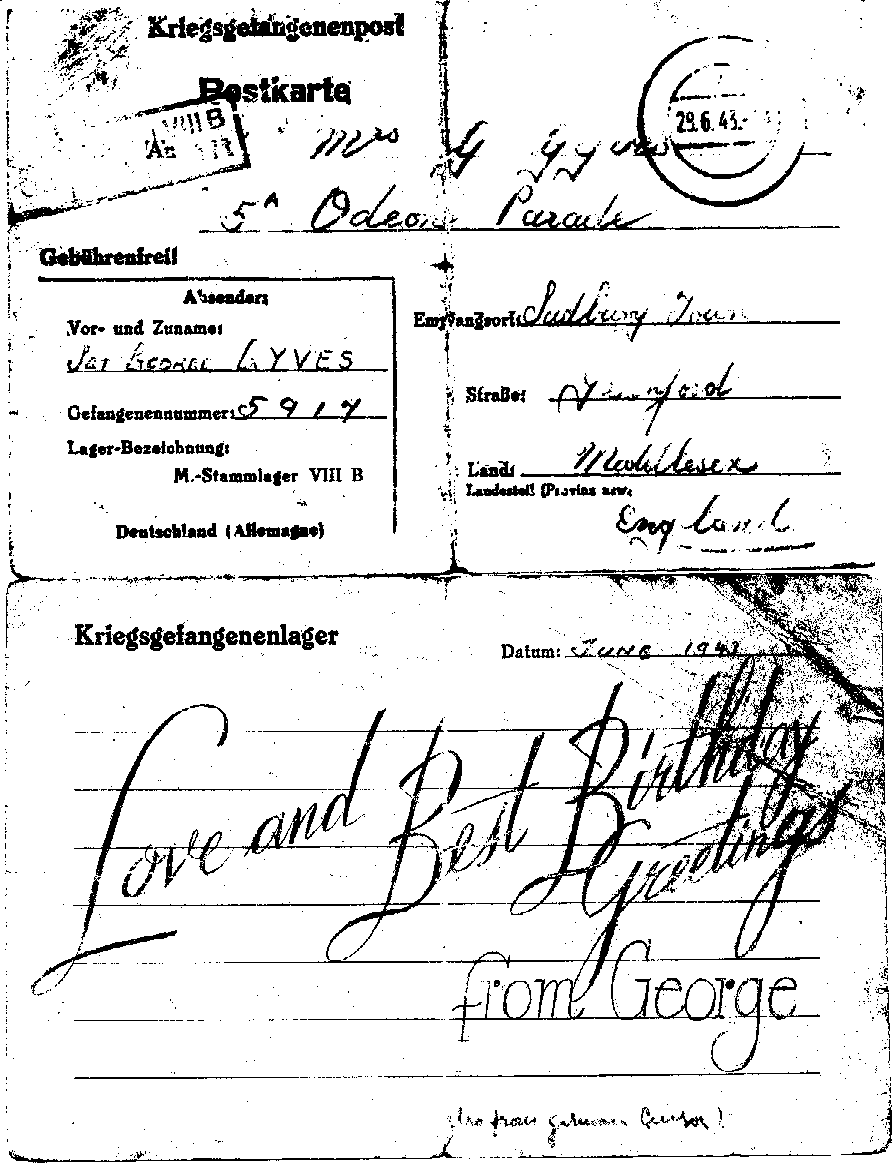 Kriegsgefangenenpost
Postkarte
VIII B
29.6.43.-
Mrs G Gyves
5A Odeon Parade
Gebührenfrei!
Absender:
Vor- und Zuname:
Sgt GEORGE GYVES
Gefangenennummer: 5917
Lager-Bezeichnung:
M.-Stammlager VIII B
Deutschland (Allemagne)
Empfangsort: Sudbury Town
Straße: Greenford
Land: Middlesex
Landesteil (Provinz usw.
England
Kriegsgefangenenlager
Datum: JUNE 1943
Love and Best Birthday
Greetings
from George
from german Censor!